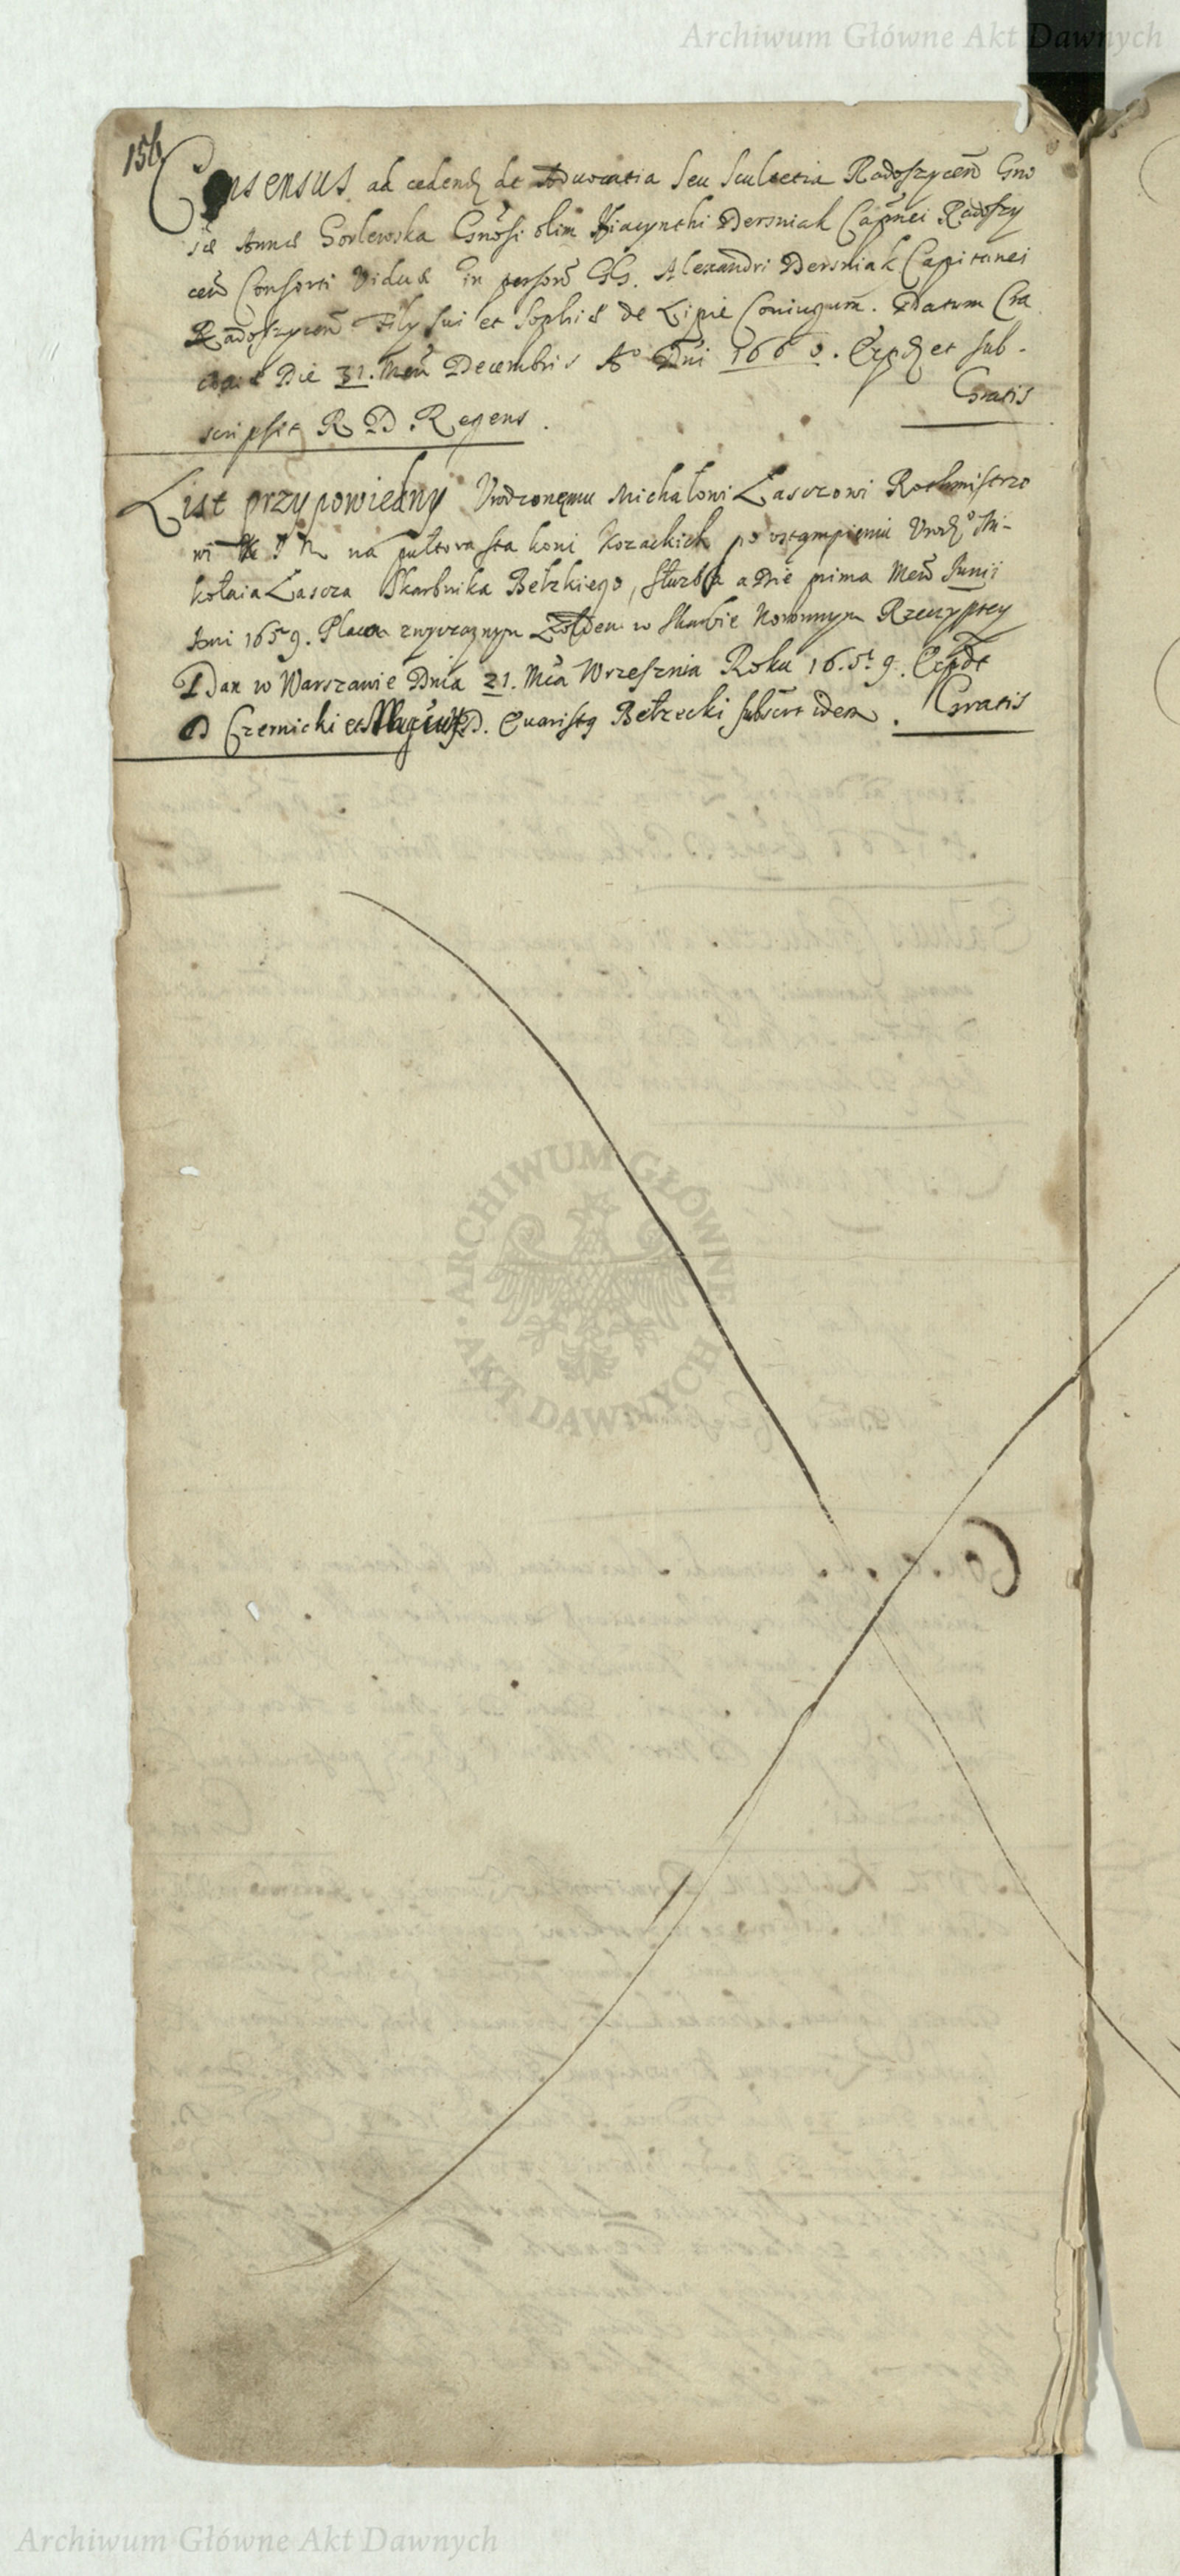 Archiwum Główne Akt Dawnych
156
Consensus ad cedend de Aduocatia seu Scultetia Radoszycen Gno
sæ Annæ Gorlewska Gnosi olim Hiacynthi Dersniak Capnei Radoszy
cen Consorti Viduæ in person GG. Alexandri Dersniak Capitanei
Radoszycen Fily sui et Sophiæ de Lipie Coniugum. Datum Cra
Die 31. Men Decembris Ao Dni 1660. et sub-
scripsit R D. Regens.
Gratis
List przypowiedny Urodzonemu Michałowi Lasczowi Rothmistrzo
wi na pułtora sta koni Kozackich po Urodzo Mi-
kołaia Lascza Skarbnika Bełzkiego, służba a die prima Men Junij
Anni 1659. Placa zwyczaynym Zołdem w Skarbie Koronnym Rzeczyptey
Dan w Warszawie Dnia 21. Mca Wrzesznia Roku 1659.
D Czernicki et D. Euaristy Bełzecki subscr idem.
Gratis
ARCHIWUM GŁÓWNE
AKT DAWNYCH
Archiwum Główne Akt Dawnych